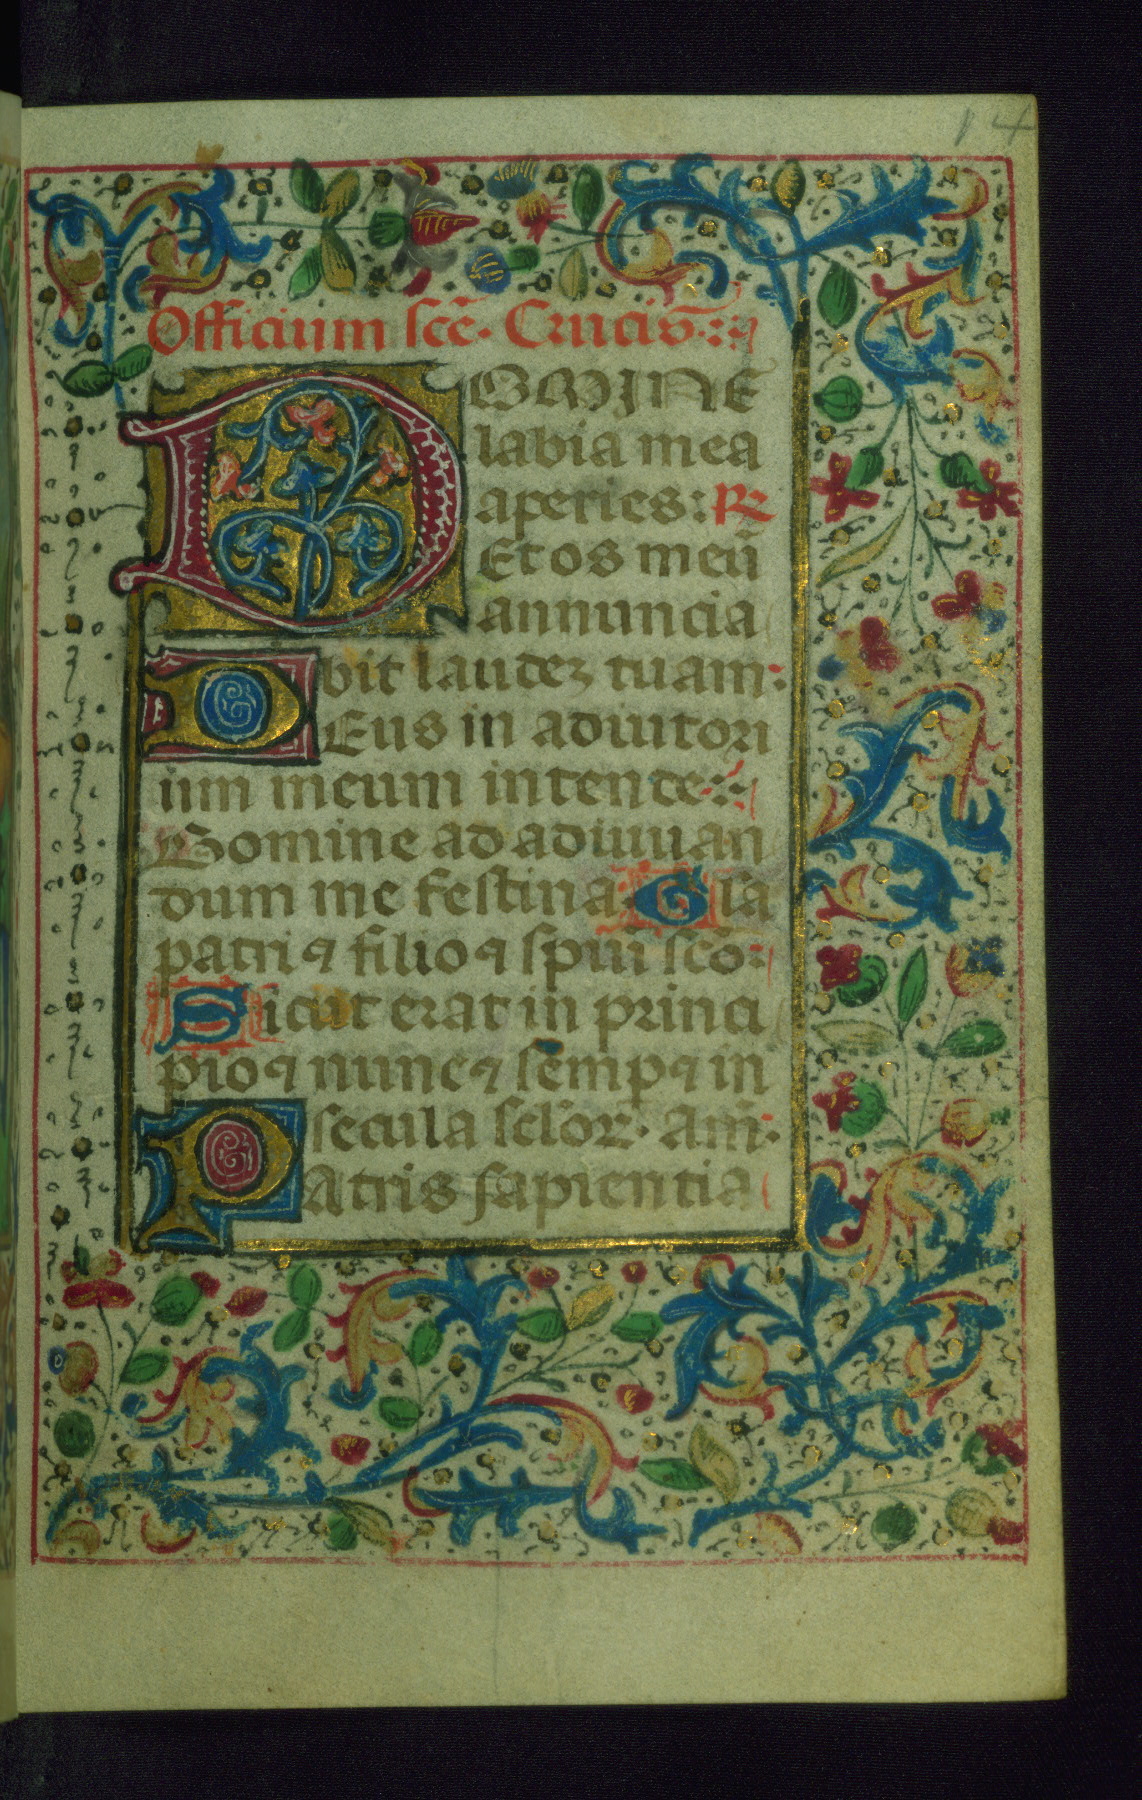 14
Officium scē. Crucis:
DOMINE
labia mea
aperies: R
Et os meū
annuncia
bit laudez tuam.
DEus in adiutori
um meum intende:
Domine ad adiuuan
dum me festina Gla
patri ꝯ filio ꝯ spiui sco:
Sicut erat in princi
pio ꝯ nunc ꝯ semp ꝯ in
secula sclōꝝ. Am̄.
PAtris sapientia